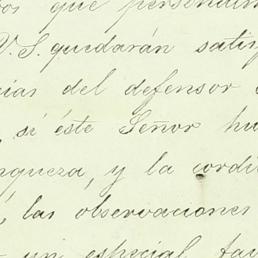 os que
V. S. quedarán satis
cias del defensor
, si éste Señor hu
nqueza, y la cordi
, las observaciones
un especial fav